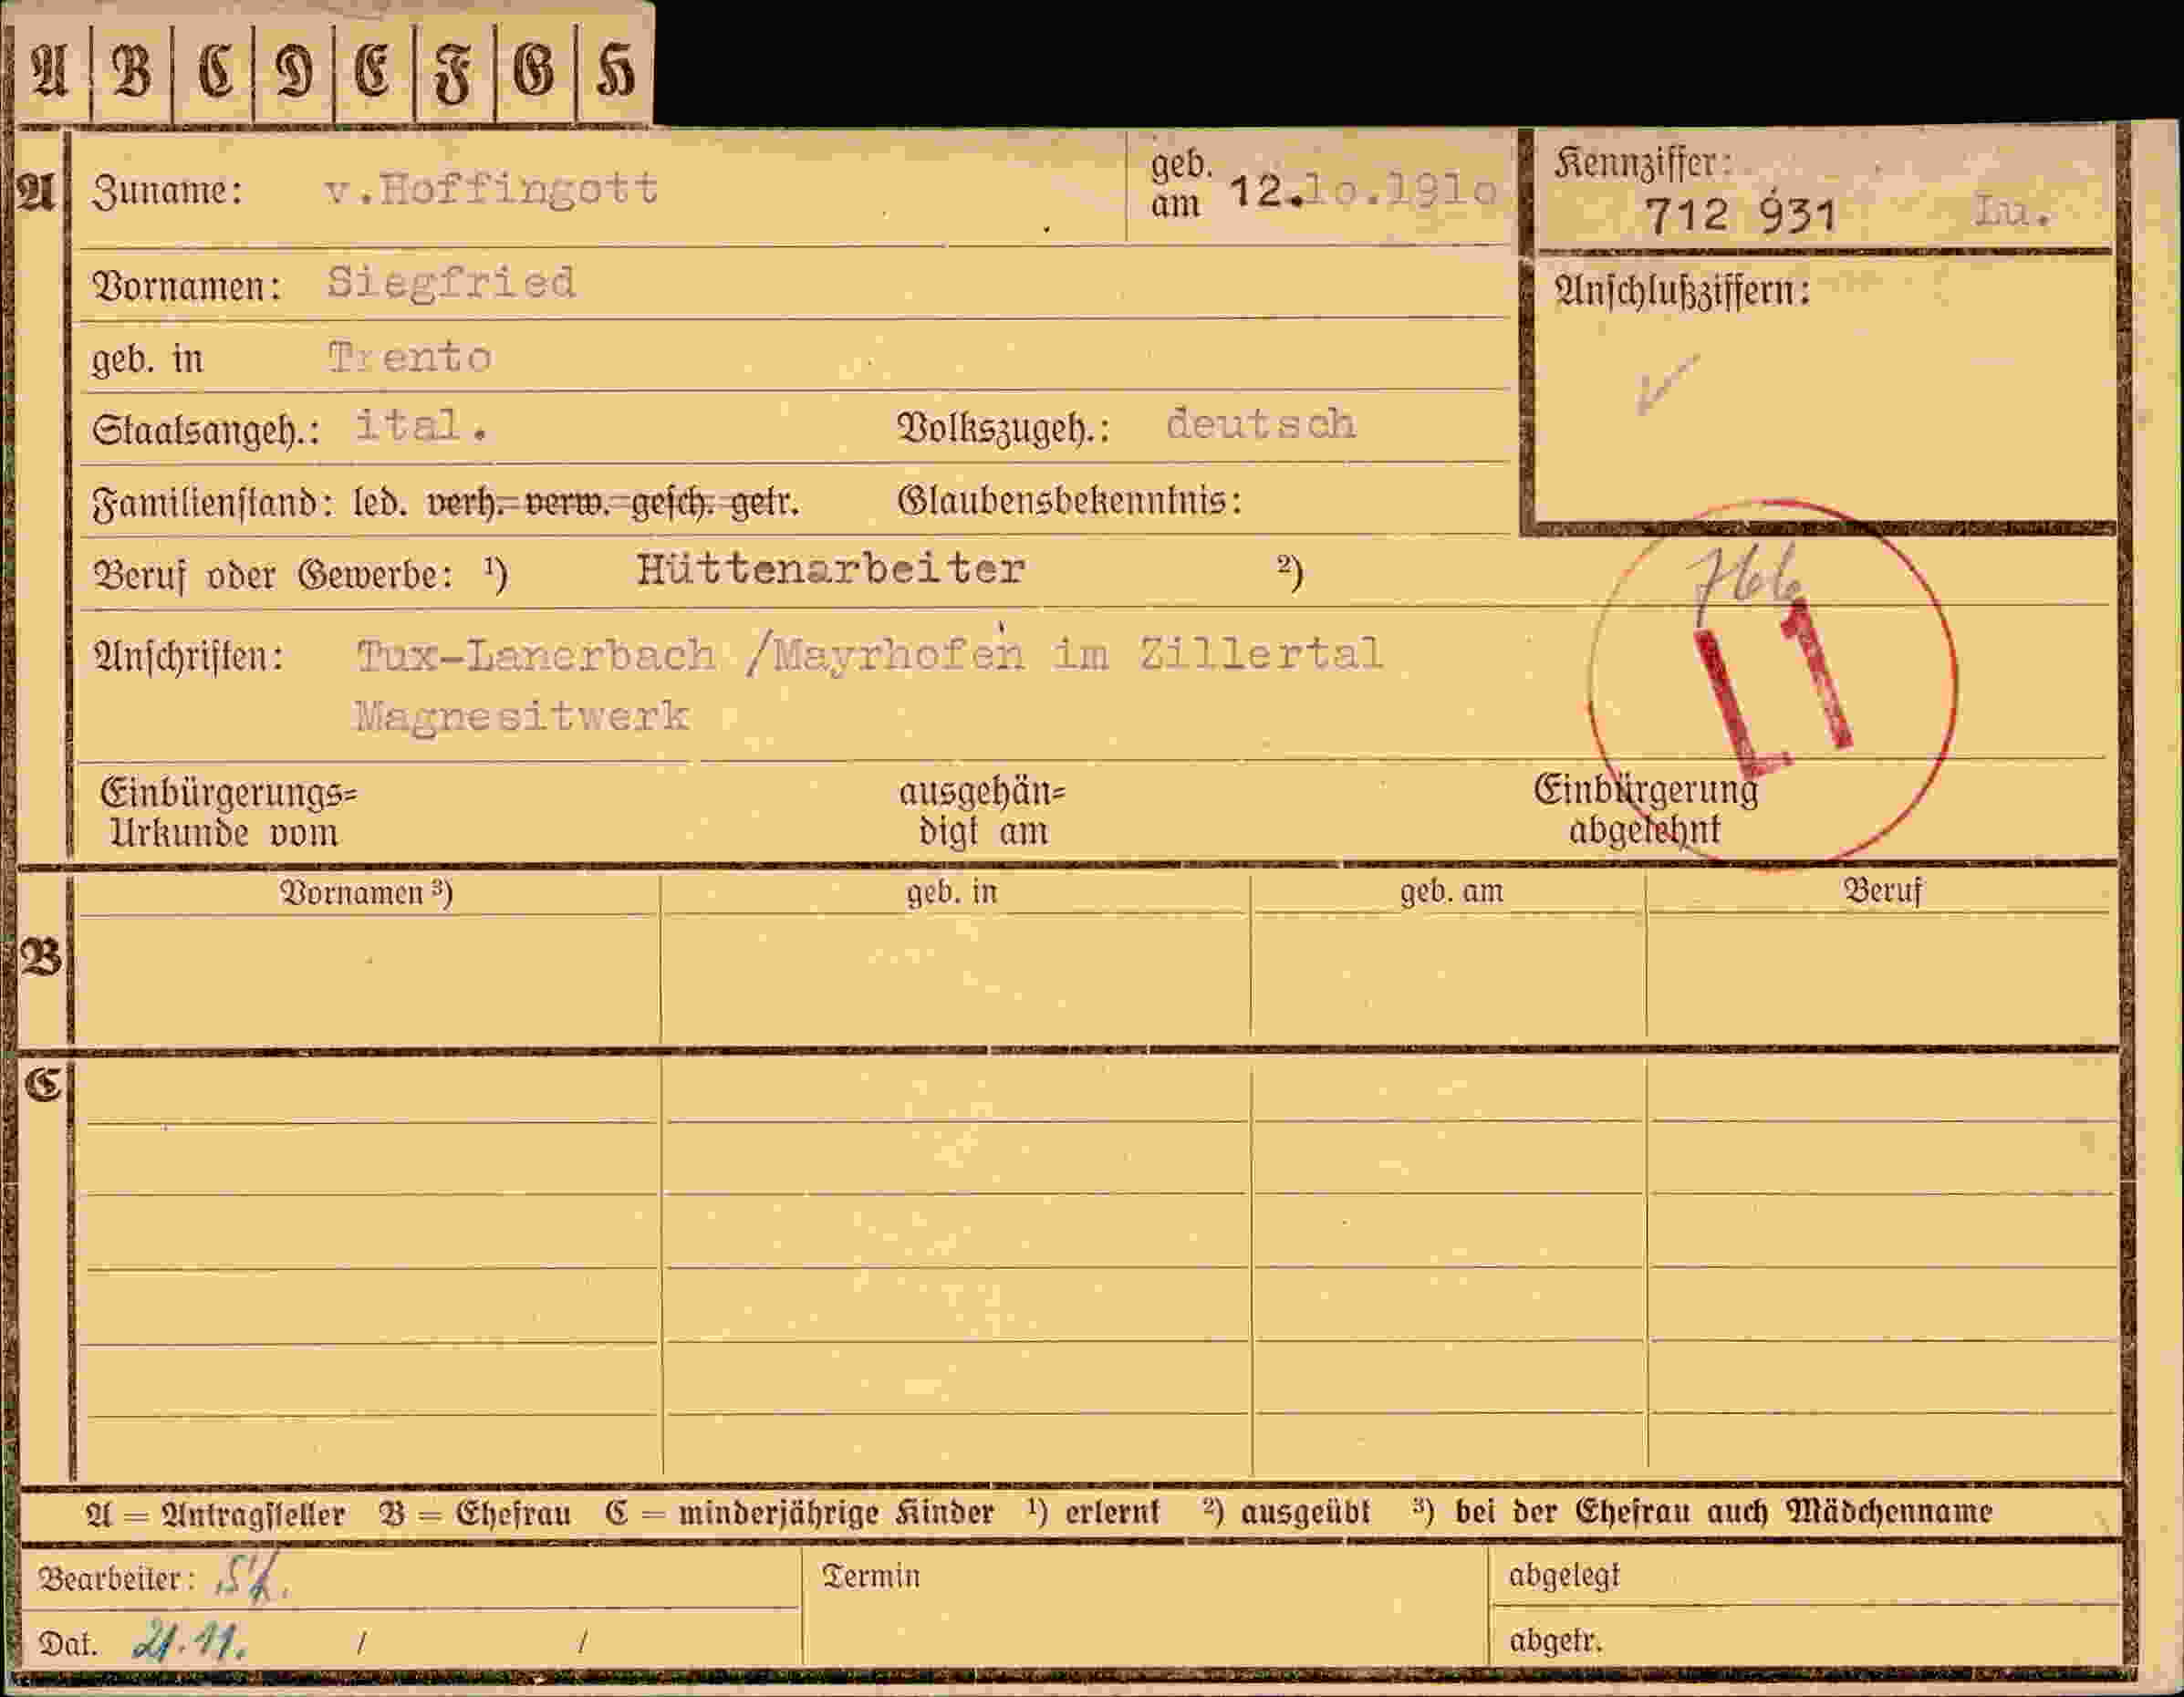 A B C D E F G H
A Zuname: v.Hoffingott geb. am 12.10.1910 Kennziffer: 712 931 Lu.
Vornamen: Siegfried Anschlußziffern:
geb. in Trento
Staatsangeh.: ital. Volkszugeh.: deutsch
Familienstand: led. verh. verw. gesch. getr. Glaubensbekenntnis:
Beruf oder Gewerbe: ¹) Hüttenarbeiter ²)
Anschriften: Tux-Lanerbach /Mayrhofen im Zillertal
Magnesitwerk
L1
Einbürgerungs=
Urkunde vom
ausgehän=
digt am
Einbürgerung
abgelehnt
Vornamen ³) geb. in geb. am Beruf
B
C
A = Antragsteller B = Ehefrau C = minderjährige Kinder ¹) erlernt ²) ausgeübt ³) bei der Ehefrau auch Mädchenname
Bearbeiter: Termin abgelegt
Dat. 21.11. / / abgetr.